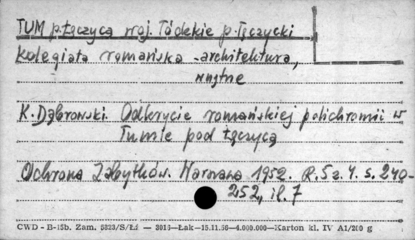 TUM p. Łęczyca woj. Łódzkie p. Łęczycki
kolegiata romańska - architektura,
wnętrze
K. Dąbrowski. Odkrycie romańskiej polichromii w
Tumie pod Łęczycą
Ochrona Zabytków. Warszawa 1952. R. 5 z. 4. s. 240-
252, il. 7
CWD - B-15b. Zam. 5323/S/Łź — 3013—Łak—15.11.56—4.000.000—Karton kl. IV A1/200 g